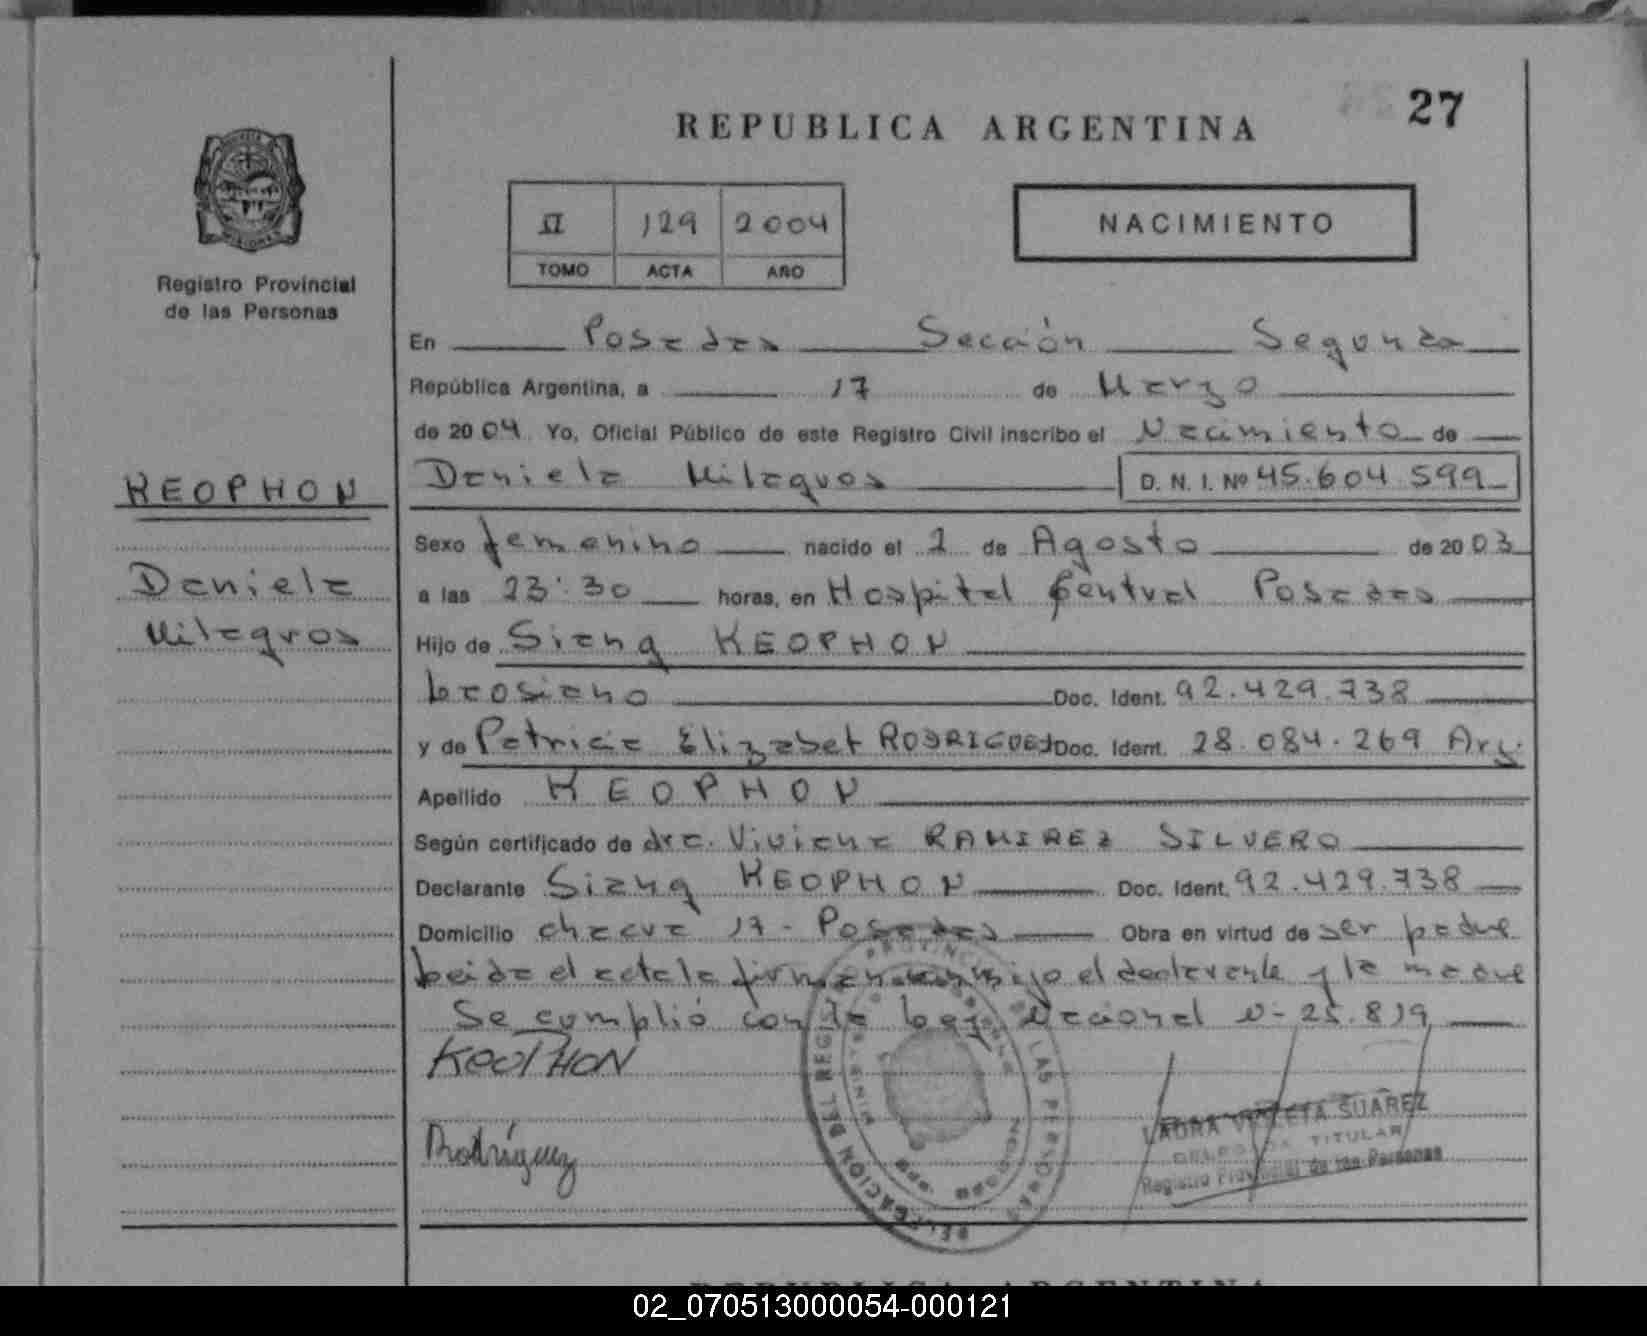 27
REPUBLICA ARGENTINA
II 129 2004
TOMO ACTA AÑO
NACIMIENTO
MISIONES
Registro Provincial
de las Personas
En Posadas Sección Segunda
República Argentina, a 17 de Marzo
de 2004 Yo, Oficial Público de este Registro Civil inscribo el Nacimiento de
KEOPHON
Daniela Milagros D. N. I. Nº 45.604.599
Sexo femenino nacido el 2 de Agosto de 2003
Daniela
a las 23:30 horas, en Hospital Central Posadas
Milagros
Hijo de Siang KEOPHON
laosiano Doc. Ident. 92.429.738
y de Patricia Elizabet RODRIGUEZ Doc. Ident. 28.084.269 Arg.
Apellido KEOPHON
Según certificado de dra. Viviana RAMIREZ SILVERO
Declarante Siang KEOPHON Doc. Ident. 92.429.738
Domicilio chacra 17 - Posadas Obra en virtud de ser padre
leida el acta la firman conmigo el declarante y la madre
Se cumplió con la ley Nacional N- 25.819
KEOPHON
Rodríguez
LAURA VIOLETA SUAREZ
DELEGADA TITULAR
Registro Provincial de las Personas
DELEGACION DEL REGISTRO PROVINCIAL DE LAS PERSONAS
REPUBLICA ARGENTINA
02_070513000054-000121